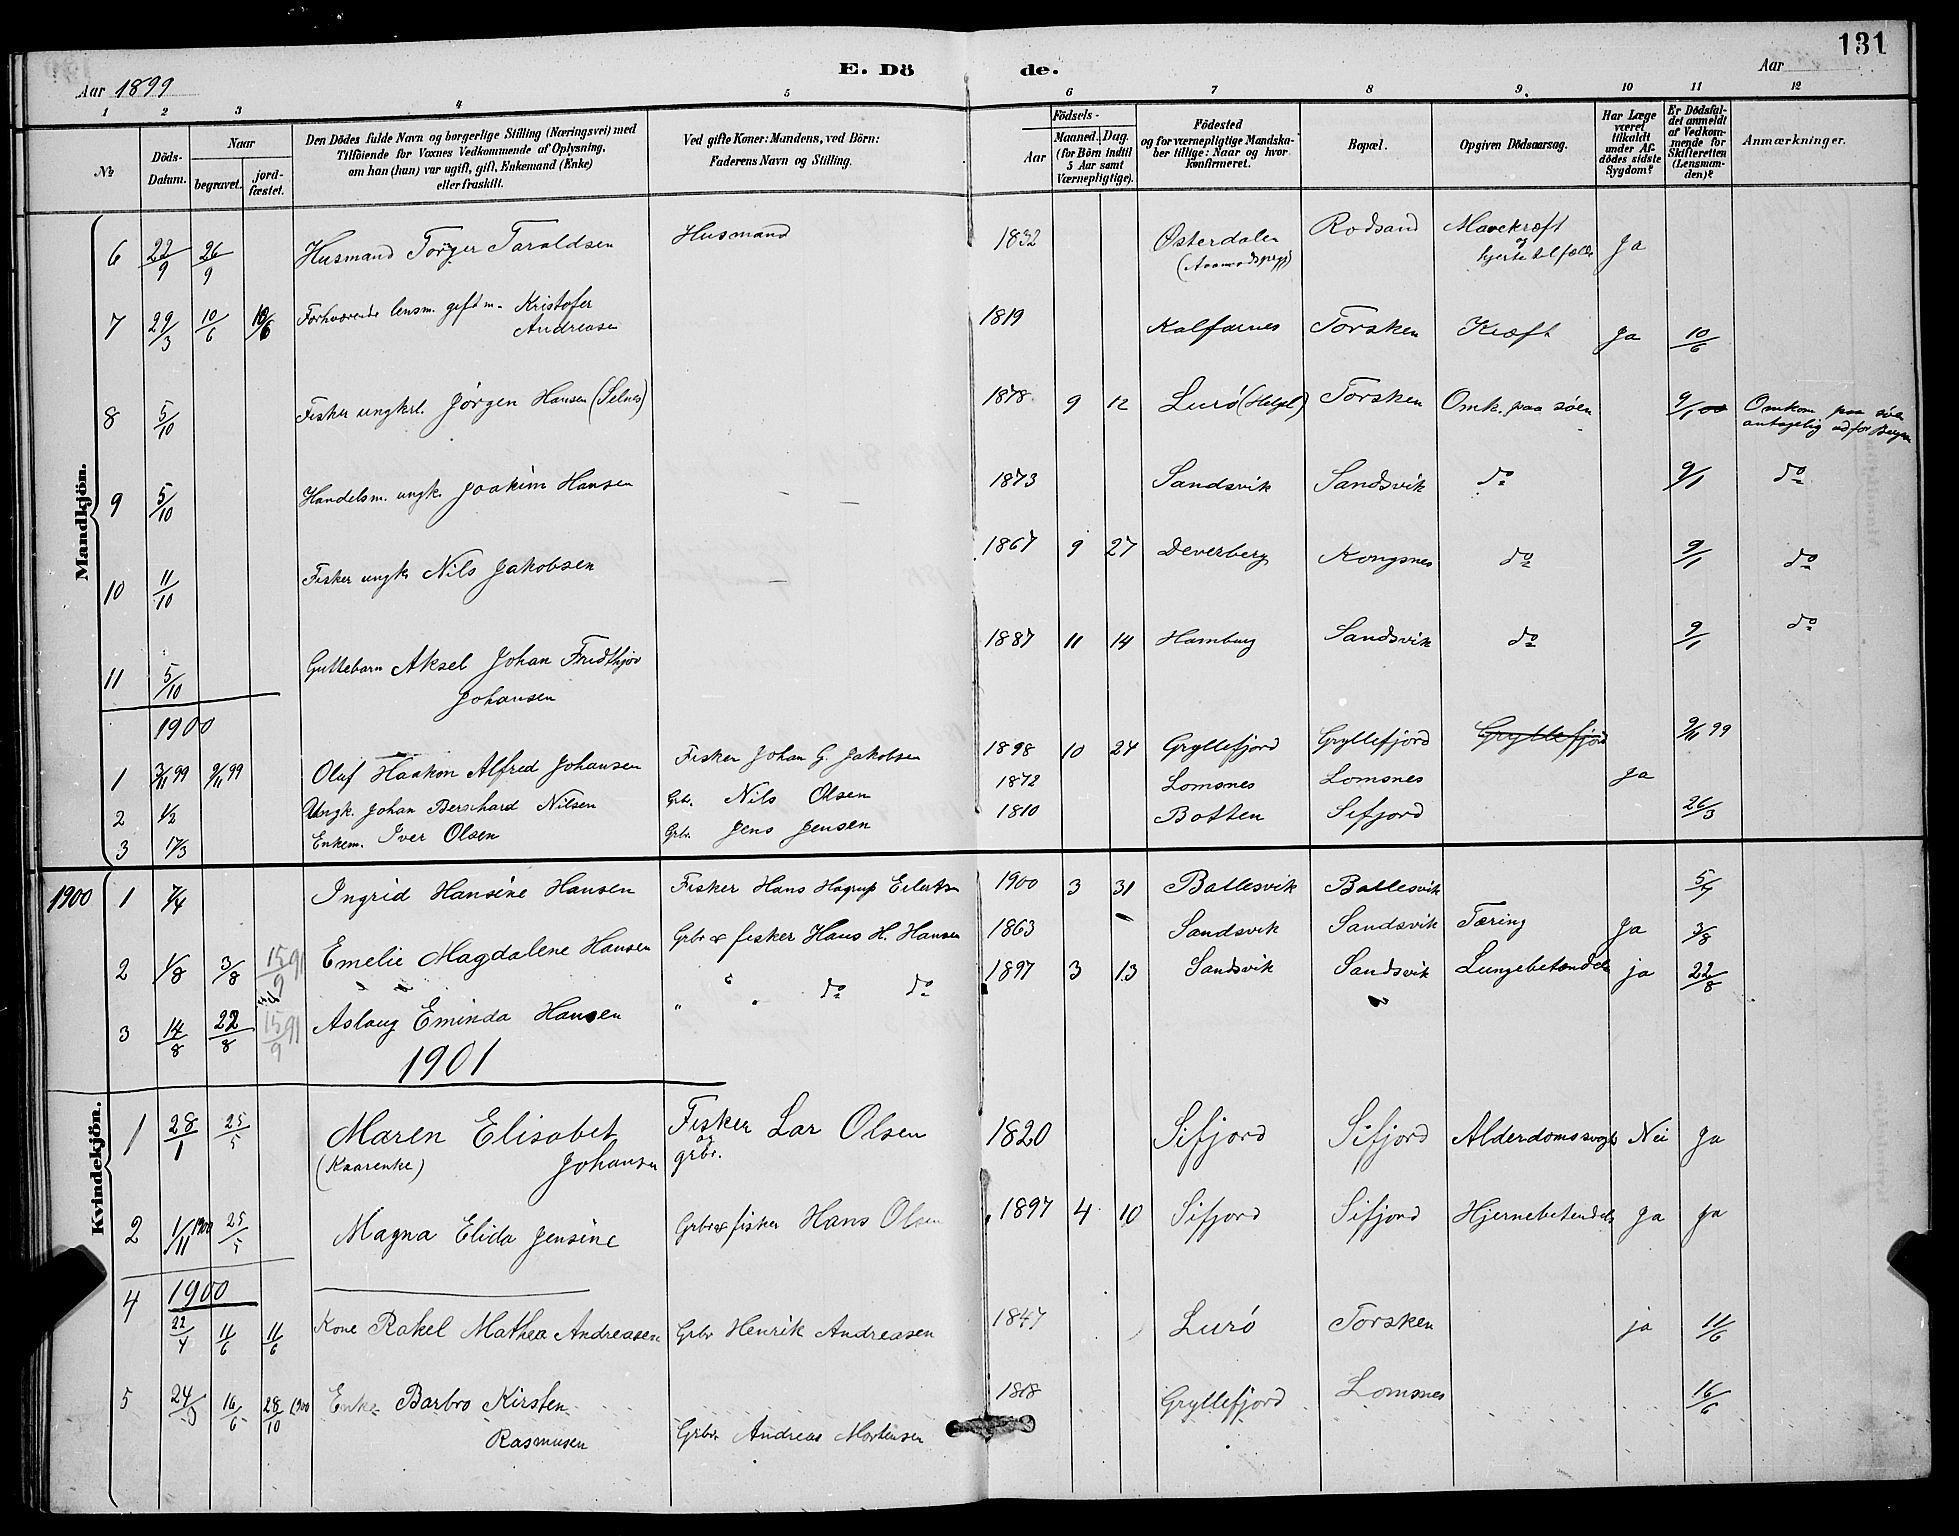 131
E. Döde.
Aar 1899
Aar
1 2 3 4 5 6 7 8 9. 10 11 12
№
Döds-Datum.
Naar
begravet.
jord-fæstet.
Den Dödes fulde Navn og borgerlige Stilling (Næringsvei) med
Tilföiende for Voxnes Vedkommende af Oplysning,
om han (hun) var ugift, gift, Enkemand (Enke)
eller fraskilt.
Ved gifte Koner: Mandens, ved Börn:
Faderens Navn og Stilling.
Födsels-
Aar
Maaned. Dag.
(for Börn indtil
5 Aar samt
Værnepligtige).
Födested
og for værnepligtige Mandska-
ber tillige: Naar og hvor
konfirmeret.
Bopæl.
Opgiven Dödsaarsag.
Har Læge
været
tilkaldt
under Af-
dödes sidste
Sygdom?
Er Dödsfal-
det anmeldt
af Vedkom-
mende for
Skifteretten
(Lensman-
den)?
Anmærkninger.
Mandkjön.
6 22/9 26/9 Husmand Torger Taraldsen Husmand 1832 Østerdalen Rodsand Mavekræft og hjertetilfælde Ja
7 29/3 10/6 10/6 Forhværende lensm. gift m. Kristofer Andreasen 1819 Kalfarnes Torsken Kræft Ja 10/6
8 5/10 Fisker ungkrl. Jörgen Hansen (Selnes) 1878 9 12 Lurö (Helgel) Torsken Omk. paa söen 9/1 00 Omkom paa söen
antagelig udfor Bergen
9 5/10 Handelsm. ungk. Joakim Hansen — — 1873 Sandsvik Sandsvik do 9/1 do
10 11/10 Fisker ungk. Nils Jakobsen — 1867 9 27 Deverberg Kongsnes do 9/1 do
11 5/10 Guttebarn Aksel Johan Fridthjov Johansen 1887 11 14 Hamburg Sandsvik do 9/1 do
1900
1 3/11 99 9/11 99 Oluf Haakon Alfred Johansen Fisker Johan G. Jakobsen 1898 10 24 Gryllefjord Gryllefjord Gryllefjord 9/11 99
2 1/2 Ungk. Johan Bernhard Nilsen Grbr. Nils Olsen 1872 Lomsnes Lomsnes Ja
3 17/3 Enkem. Iver Olsen Grbr. Jens Jensen 1810 Botten Sifjord 26/3
Kvindekjön.
1900 1 7/4 Ingrid Hansine Hansen Fisker Hans Hagrup Eilertsn 1900 3 31 Ballesvik Ballesvik 5/7
2 1/8 3/8 15/9 91 Emelie Magdalene Hansen Grbr & fisker Hans H. Hansen 1863 Sandsvik Sandsvik Tæring Ja 3/8
3 14/8 22/8 15/9 91 Aslaug Eminda Hansen " " " do do 1897 3 13 Sandsvik Sandsvik Lungebetændelse ja 22/8
1901
1 28/1 25/5 Maren Elisabet Johansen
(Kaarenke) Fisker og grbr. Lar Olsen 1820 Sifjord Sifjord Alderdomssvagh Nei Ja
2 1/11 1900 25/5 Magna Elida Jensine Grbr & fisker Hans Olsen 1897 4 10 Sifjord Sifjord Hjernebetendels Ja Ja
1900
4 22/4 11/6 11/6 Kone Rakel Mathea Andreasen Grbr Henrik Andreasen 1847 Lurö Torsken ja 11/6
5 24/5 16/6 28/10 1900 Enke Barbro Kirsten Rasmusen Grbr. Andreas Mortensen 1818 Gryllefjord Lomsnes 16/6